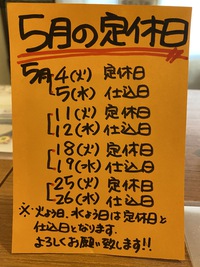 5月の定休日
5月4(火)定休日
5(水)仕込日
11(火)定休日
12(水)仕込日
18(火)定休日
19(水)仕込日
25(火)定休日
26(水)仕込日
※火よう日、水よう日は定休日と
仕込日となります。
よろしくお願い致します!!